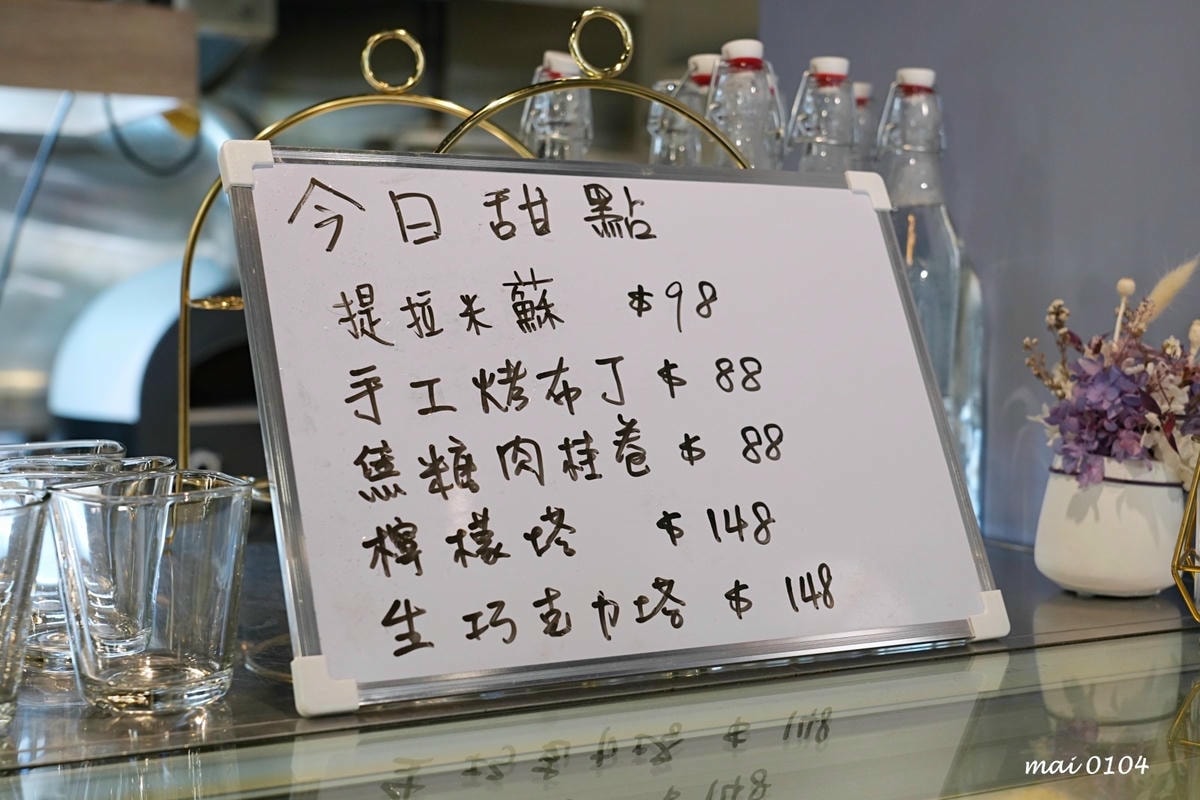 今日甜點
提拉米蘇 $98
手工烤布丁 $88
焦糖肉桂卷 $88
檸檬塔 $148
生巧克力塔 $148
mai 0104